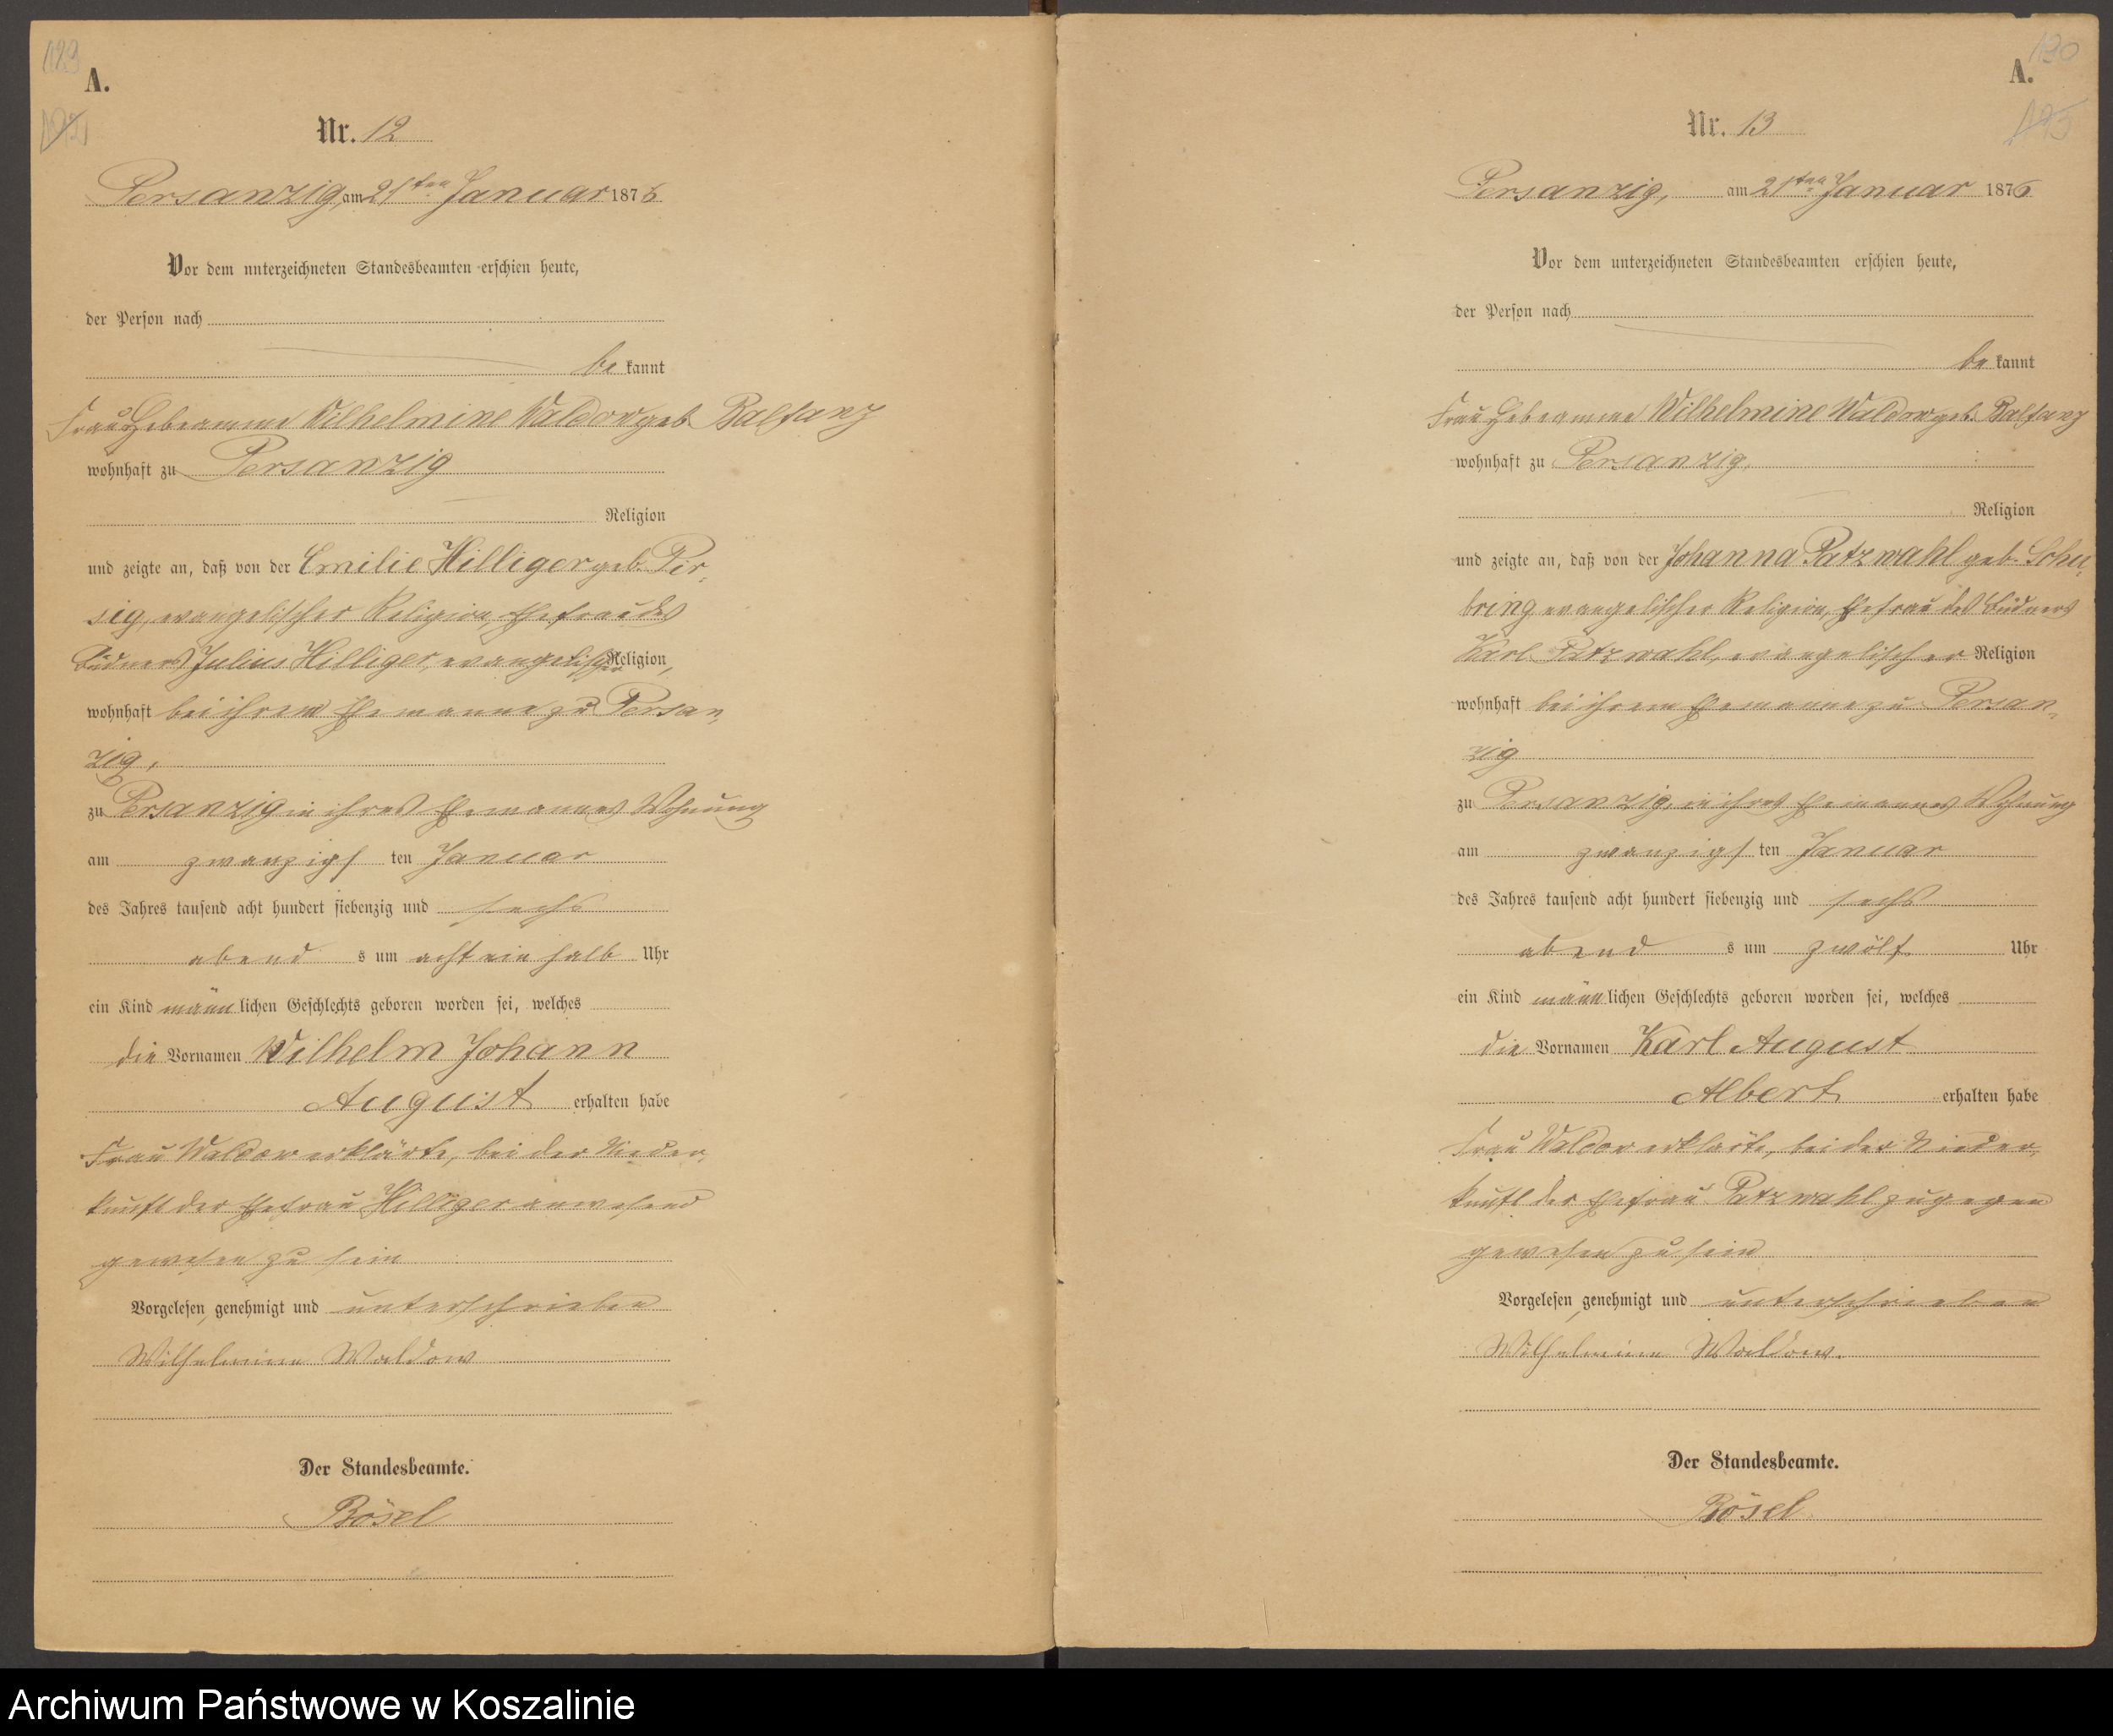 A.
Nr. 12
Persanzig, am 21ten Januar 1876
Vor dem unterzeichneten Standesbeamten erschien heute,
der Person nach
be kannt
Frau Hebeamme Wilhelmine Waldow geb. Balfanz
wohnhaft zu Persanzig
Religion
und zeigte an, daß von der Emilie Hilliger geb. Pir-
sig, evangelischer Religion, Ehefrau des
Büdners Julius Hilliger, evangelischer Religion,
wohnhaft bei ihrem Ehemanne zu Persan-
zig,
zu Persanzig in ihres Ehemannes Wohnung
am zwanzigs ten Januar
des Jahres tausend acht hundert siebenzig und sechs
abend s um acht ein halb Uhr
ein Kind männ lichen Geschlechts geboren worden sei, welches
die Vornamen Wilhelm Johann
August erhalten habe
Frau Waldow erklärte, bei der Nieder-
kunft der Ehefrau Hilliger anwesend
gewesen zu sein
Vorgelesen, genehmigt und unterschrieben
Wilhelmine Waldow
Der Standesbeamte.
Bösel
190
A.
Nr. 13
Persanzig, am 21ten Januar 1876
Vor dem unterzeichneten Standesbeamten erschien heute,
der Person nach
be kannt
Frau Hebeamme Wilhelmine Waldow geb. Balfanz
wohnhaft zu Persanzig,
Religion
und zeigte an, daß von der Johanna Patzwahl geb. Schu-
bring evangelischer Religion, Ehefrau des Büdners
Karl Patzwahl, evangelischer Religion
wohnhaft bei ihrem Ehemanne zu Persan-
zig
zu Persanzig, in ihres Ehemannes Wohnung
am zwanzigs ten Januar
des Jahres tausend acht hundert siebenzig und sechs
abend s um zwölf Uhr
ein Kind männ lichen Geschlechts geboren worden sei, welches
die Vornamen Karl August
Albert erhalten habe
Frau Waldow erklärte, bei der Nieder-
kunft der Ehefrau Patzwahl zugegen
gewesen zu sein
Vorgelesen, genehmigt und unterschrieben
Wilhelmine Waldow.
Der Standesbeamte.
Bösel
Archiwum Państwowe w Koszalinie